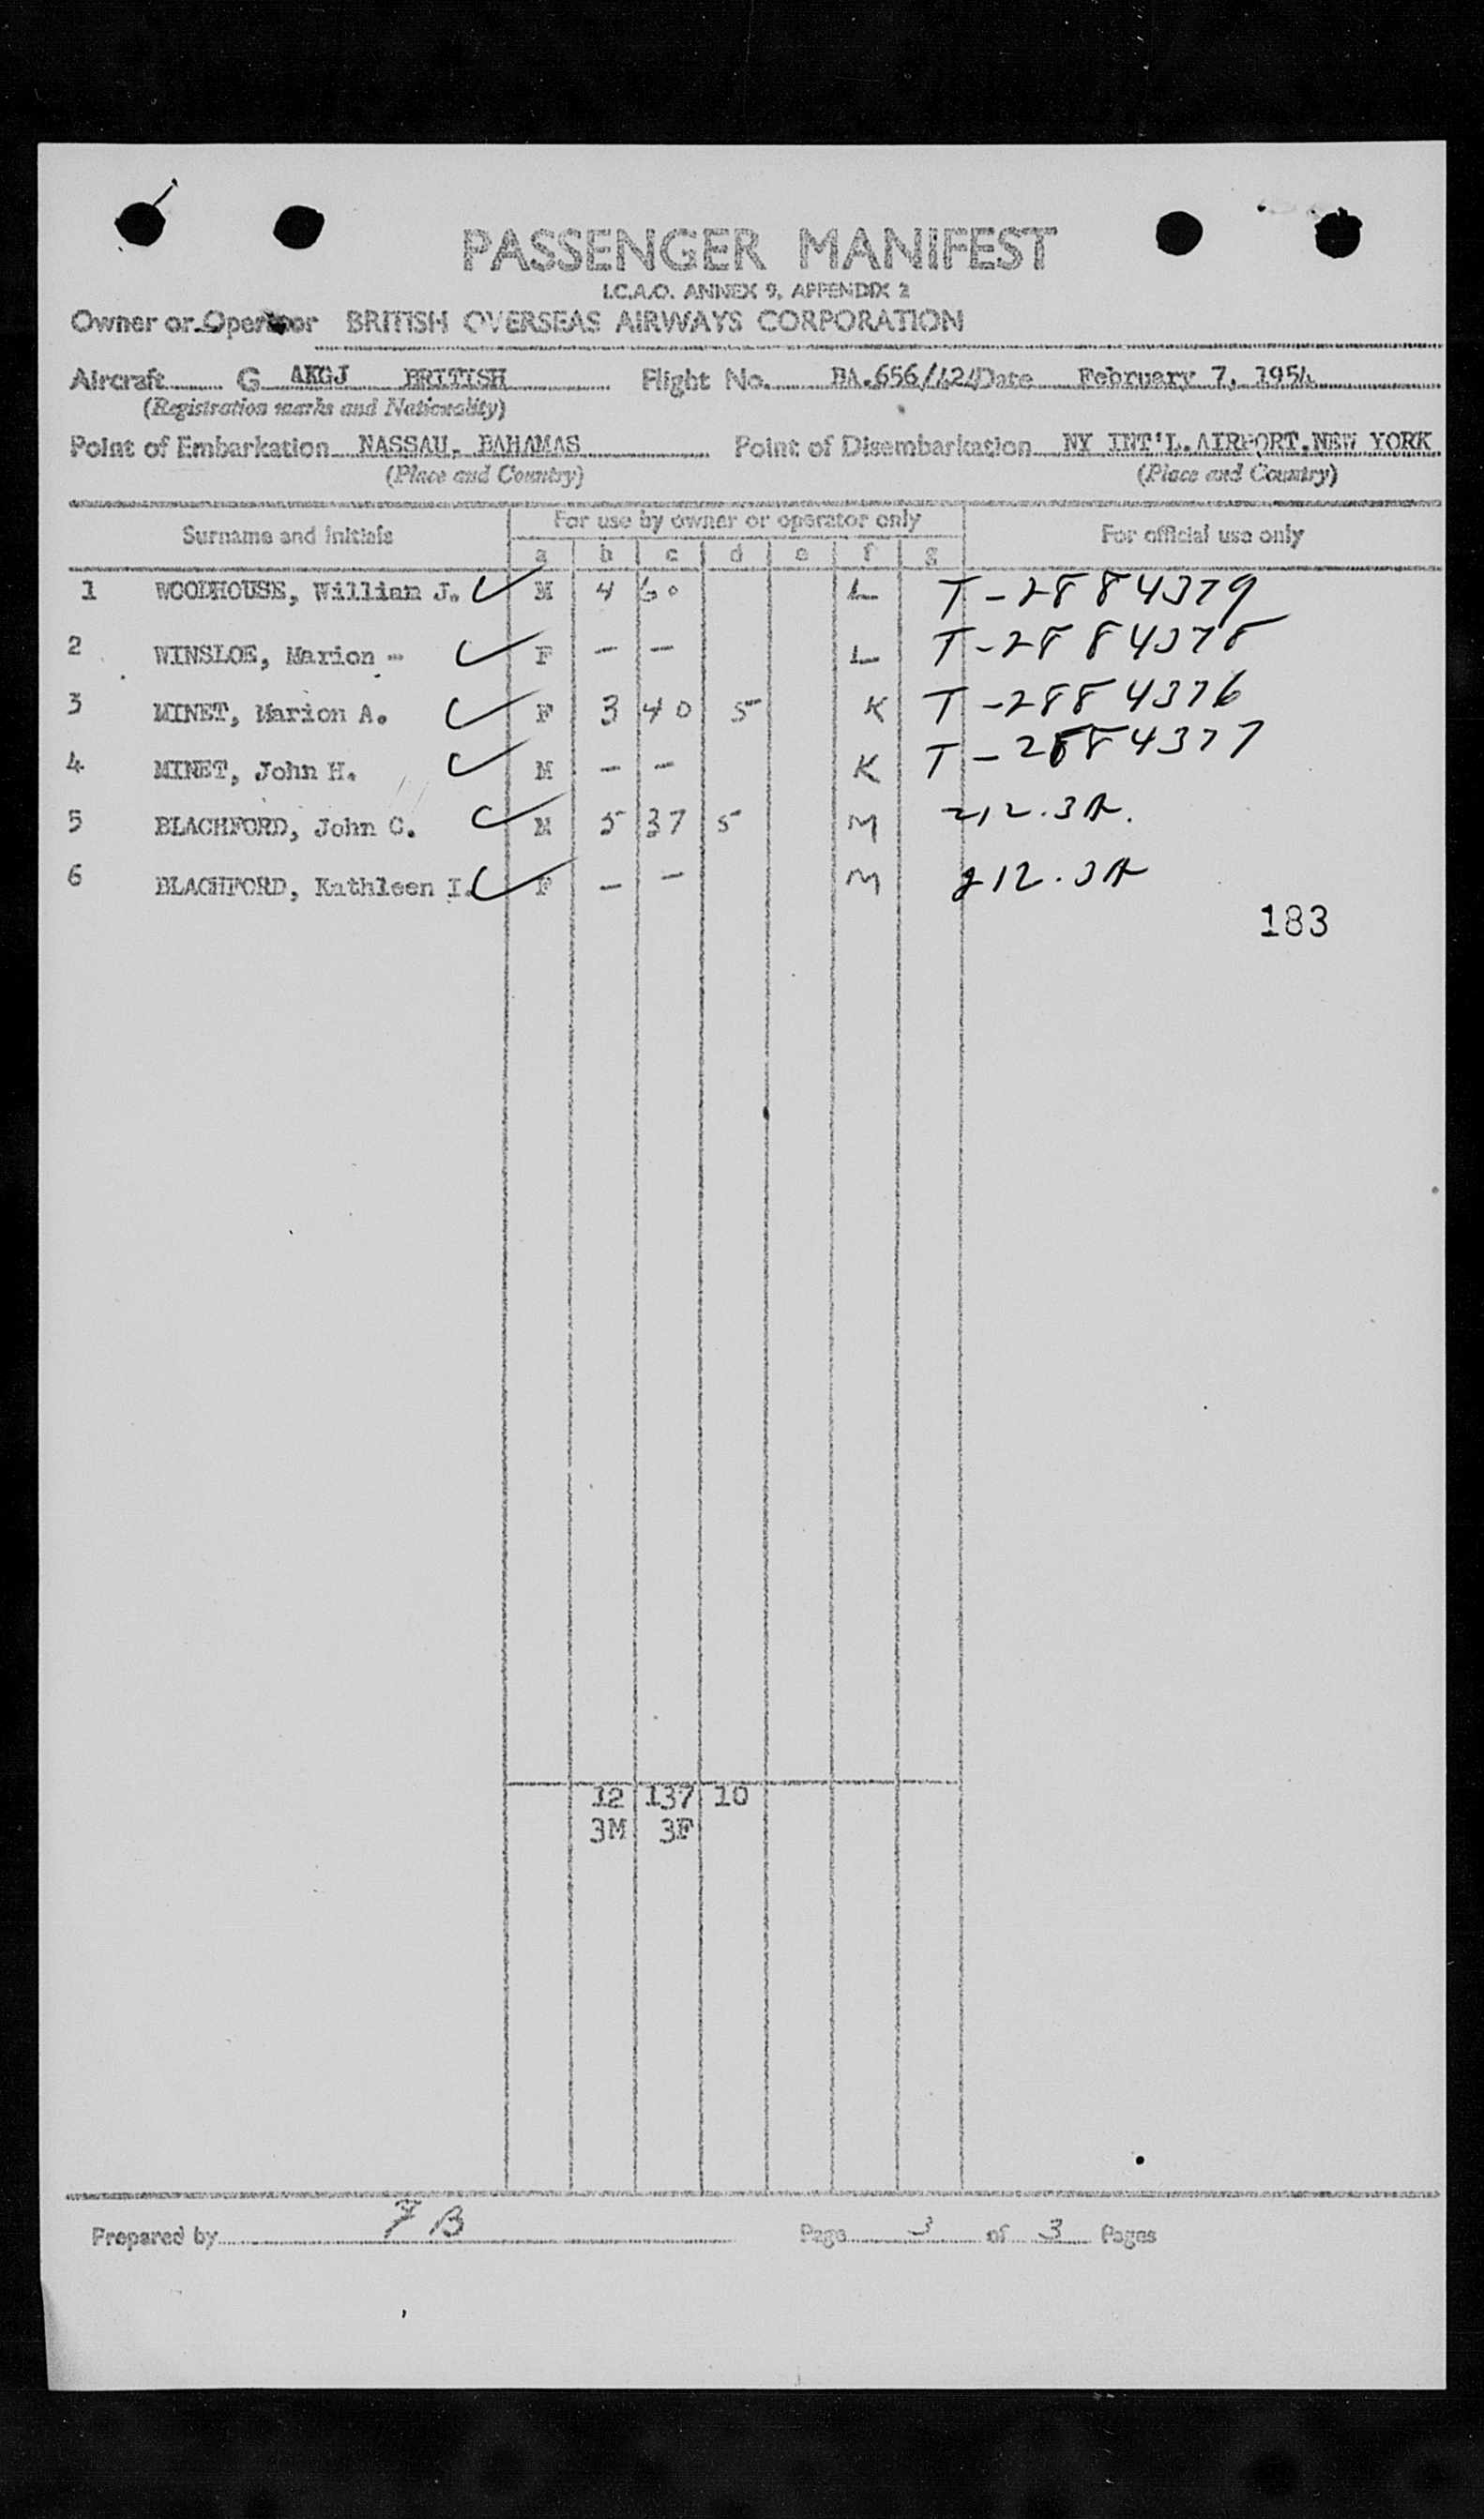 PASSENGER MANIFEST
I.C.A.O. ANNEX 9, APPENDIX 2
Owner or Operator BRITISH OVERSEAS AIRWAYS CORPORATION
Aircraft G AKGJ BRITISH Flight No. BA.656/424 Date February 7, 1954
(Registration marks and Nationality)
Point of Embarkation NASSAU, BAHAMAS Point of Disembarkation NY INT'L.AIRPORT.NEW YORK
(Place and Country) (Place and Country)
Surname and initials For use by owner or operator only For official use only
a b c d e f g
1 WOODHOUSE, William J. M 4 60 L T-2884379
2 WINSLOE, Marion - F — — L T-2884378
3 MINET, Marion A. F 3 40 5 K T-2884376
4 MINET, John H. M — — K T-2884377
5 BLACHFORD, John C. M 5 37 5 M 212.3A.
6 BLACHFORD, Kathleen I. F — — M 212.3A
183
12 137 10
3M 3F
Prepared by 7B Page 3 of 3 Pages